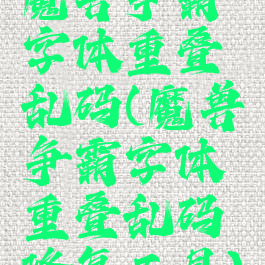 魔兽争霸
字体重叠
乱码(魔兽
争霸字体
重叠乱码
修复工具)